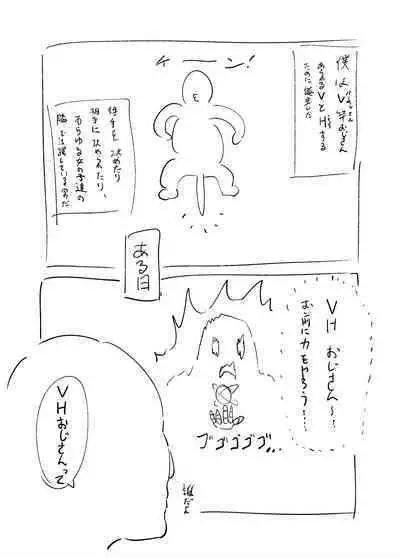 チーン!
僕はV竿おじさん
あらゆるVとHする
ために誕生した
相手を攻めたり
相手に攻められたり、
あらゆる女の子達の
隣で活躍している男だ
ある日
VHおじさん〜〜
お前に力をやろう……
ゴゴゴゴゴ…
VHおじさんって
誰だよ